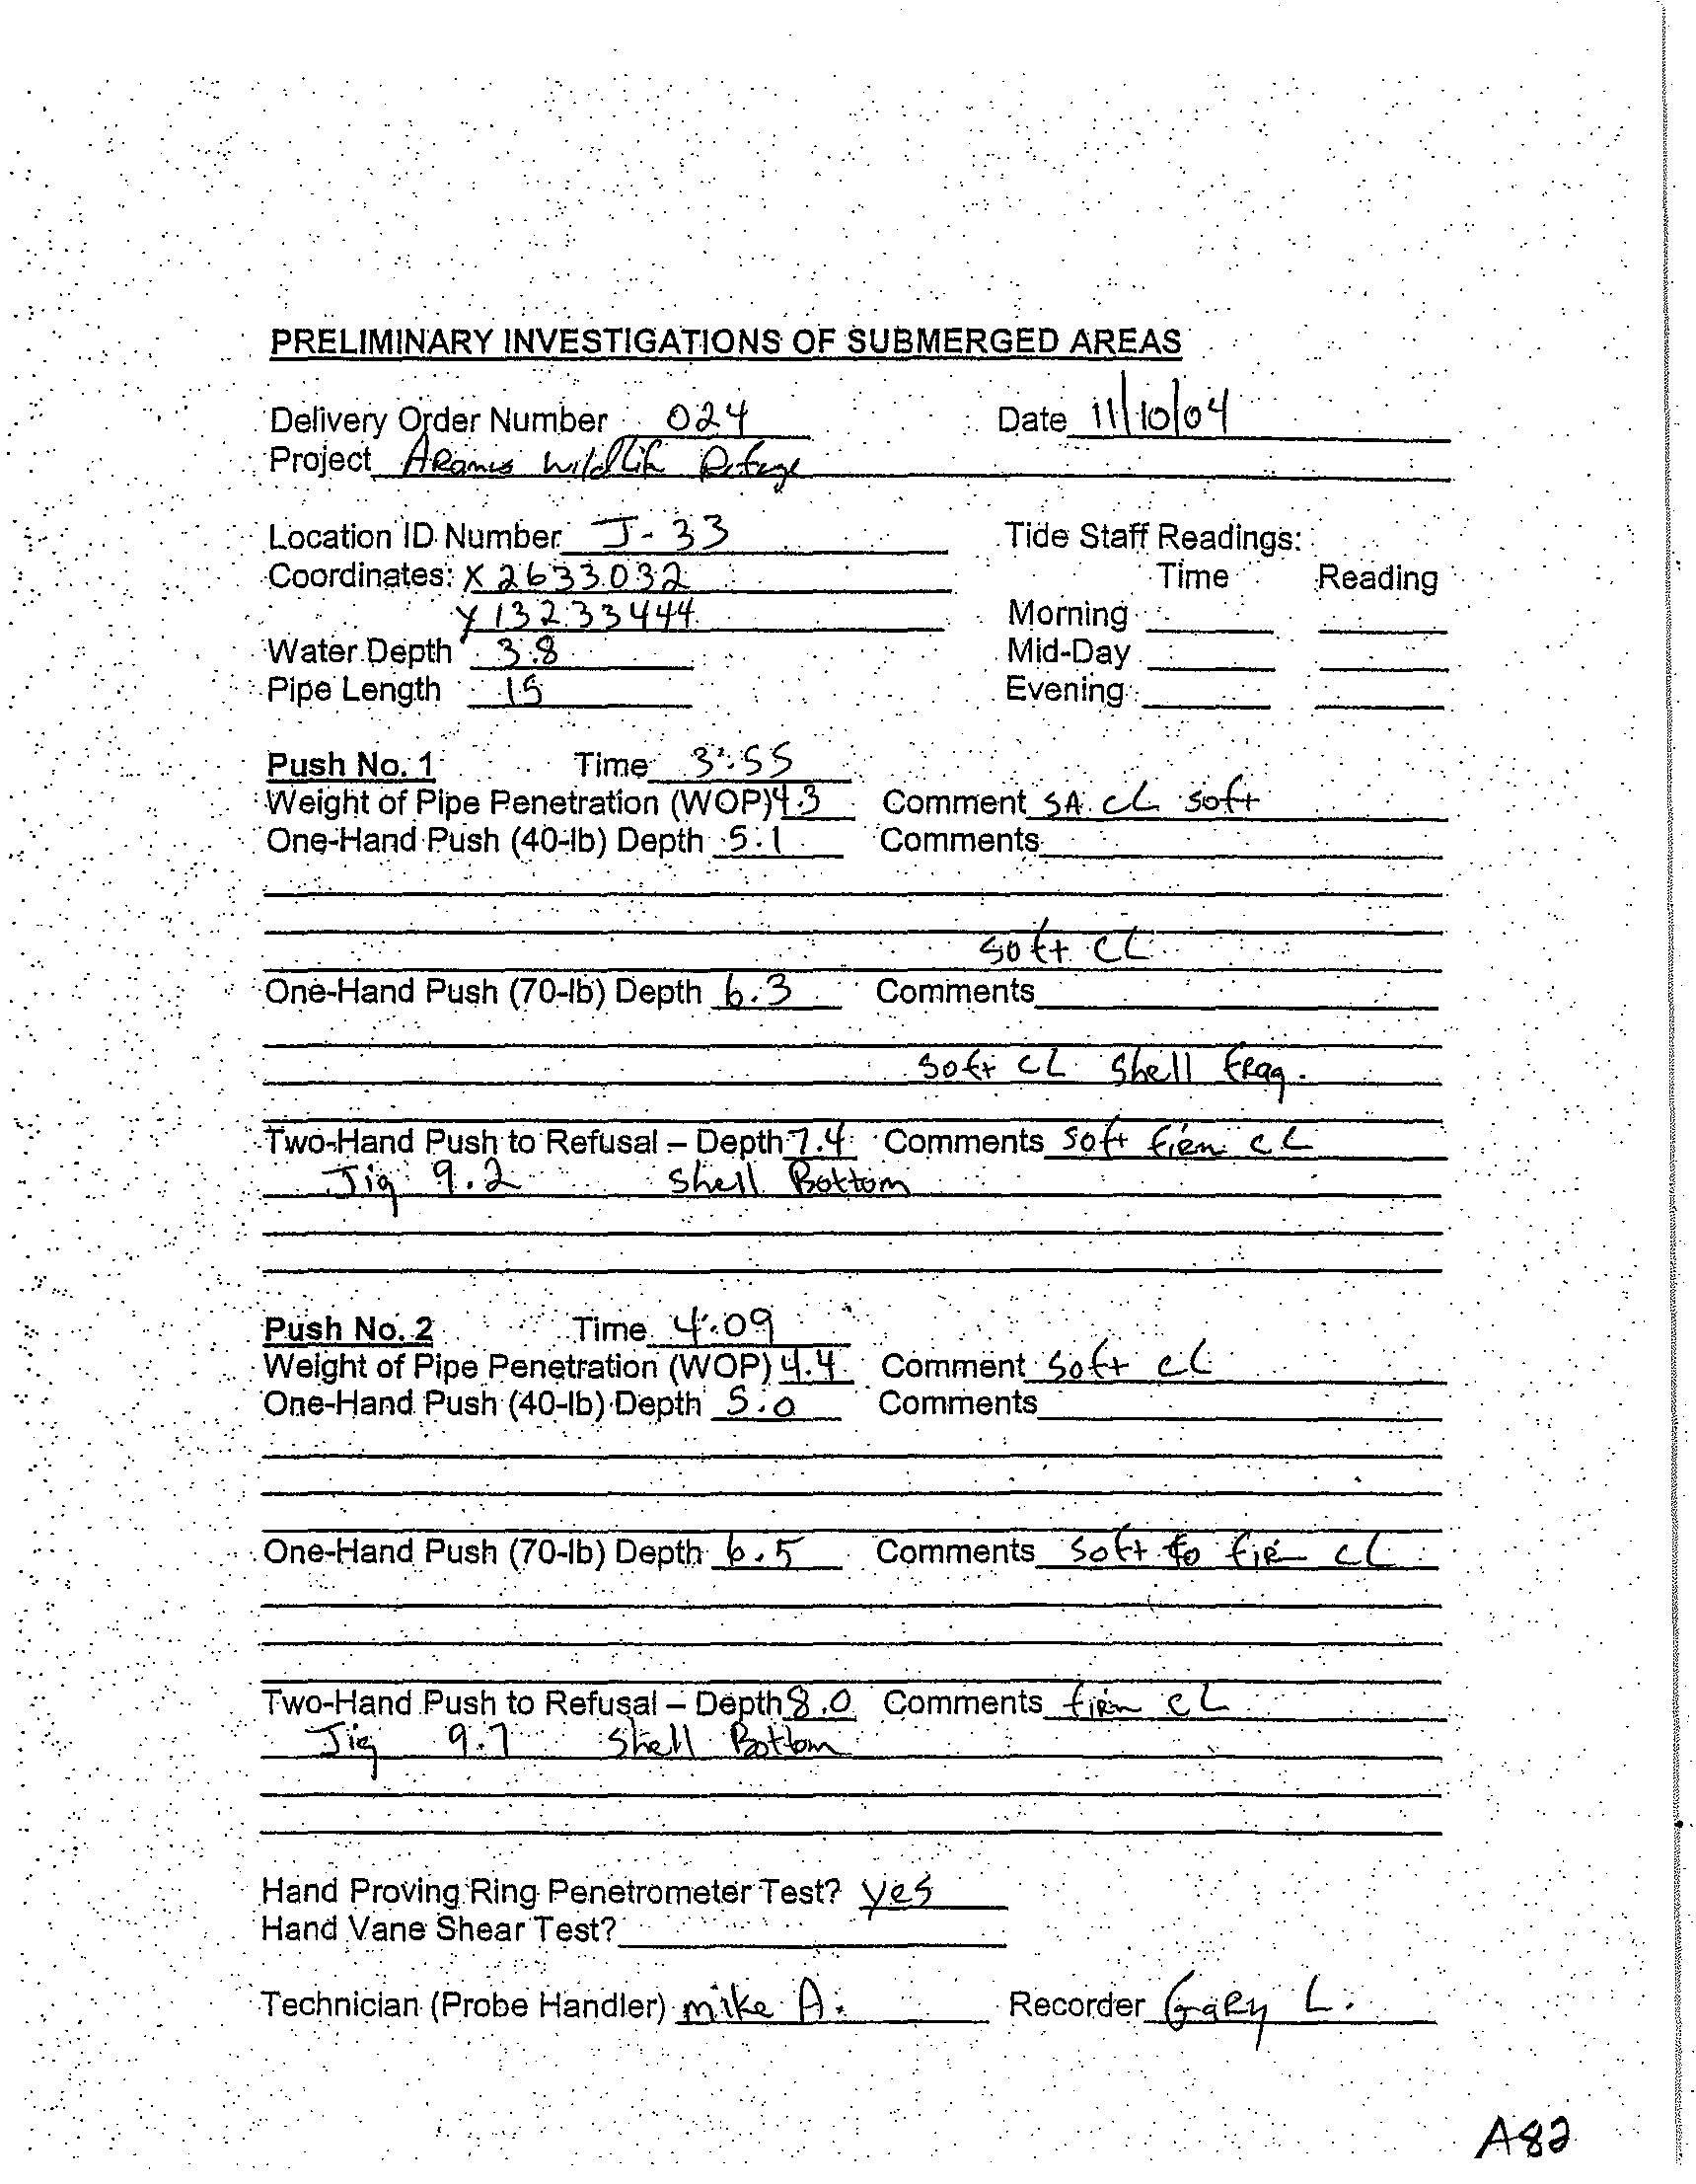 PRELIMINARY INVESTIGATIONS OF SUBMERGED AREAS
Delivery Order Number 024 Date 11/10/04
Project Wildlife Refuge
Location ID Number J-33 Tide Staff Readings:
Coordinates: X 2633032 Time Reading
Y 13233444 Morning
Water Depth 3.8 Mid-Day
Pipe Length 15 Evening
Push No. 1 Time 3:55
Weight of Pipe Penetration (WOP) 4.3 Comment SA. CL soft
One-Hand Push (40-lb) Depth 5.1 Comments
soft CL
One-Hand Push (70-lb) Depth 6.3 Comments
soft CL shell frag.
Two-Hand Push to Refusal – Depth 7.4 Comments soft firm CL
Jig 9.2 shell Bottom
Push No. 2 Time 4:09
Weight of Pipe Penetration (WOP) 4.4 Comment soft CL
One-Hand Push (40-lb) Depth 5.0 Comments
One-Hand Push (70-lb) Depth 6.5 Comments soft to firm CL
Two-Hand Push to Refusal – Depth 8.0 Comments firm CL
Jig 9.7 Shell Bottom
Hand Proving Ring Penetrometer Test? yes
Hand Vane Shear Test?
Technician (Probe Handler) mike A. Recorder Gary L.
A82